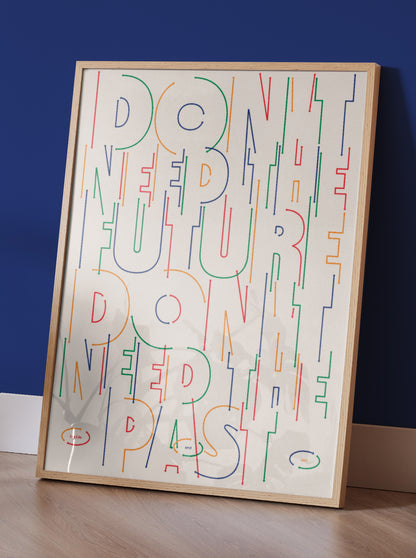 DON'T
NEED THE
FUTURE
DON'T
NEED THE
PAST